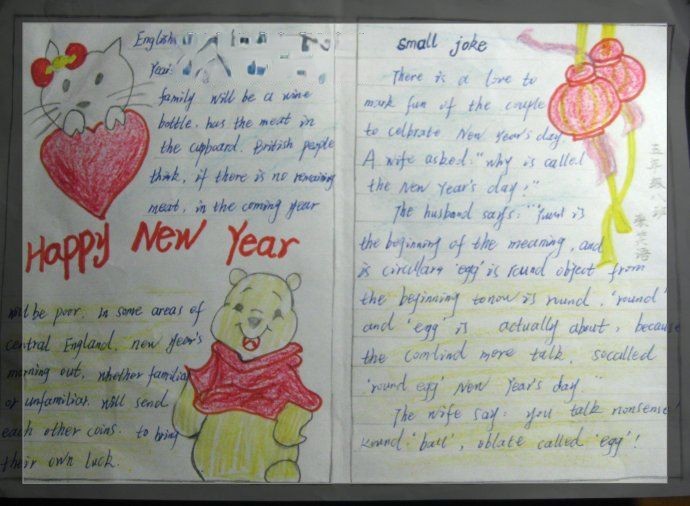 English
family will be a wine
bottle. has the meat in
the cupboard. British people
think, if there is no remaining
meat, in the coming year
Happy New Year
will be poor. in some areas of
central England. new year's
morning out, whether familiar
or unfamiliar. will send
each other coins. to bring
their own luck.
small joke
There is a love to
mark fun of the couple
to celbrate New Year's day.
A wife asked: "why is called
the New Year's day?"
The husband says: " is
the beginning of the meaning, and
is circullary 'egg' is round object from
the beginning to now is round. 'round'
and 'egg' is actually about, because
the comlind mere talk, socalled
'round egg' New Year's day."
The wife say: you talk nonsense!
Round 'ball', oblate called 'egg'!
五年级八班